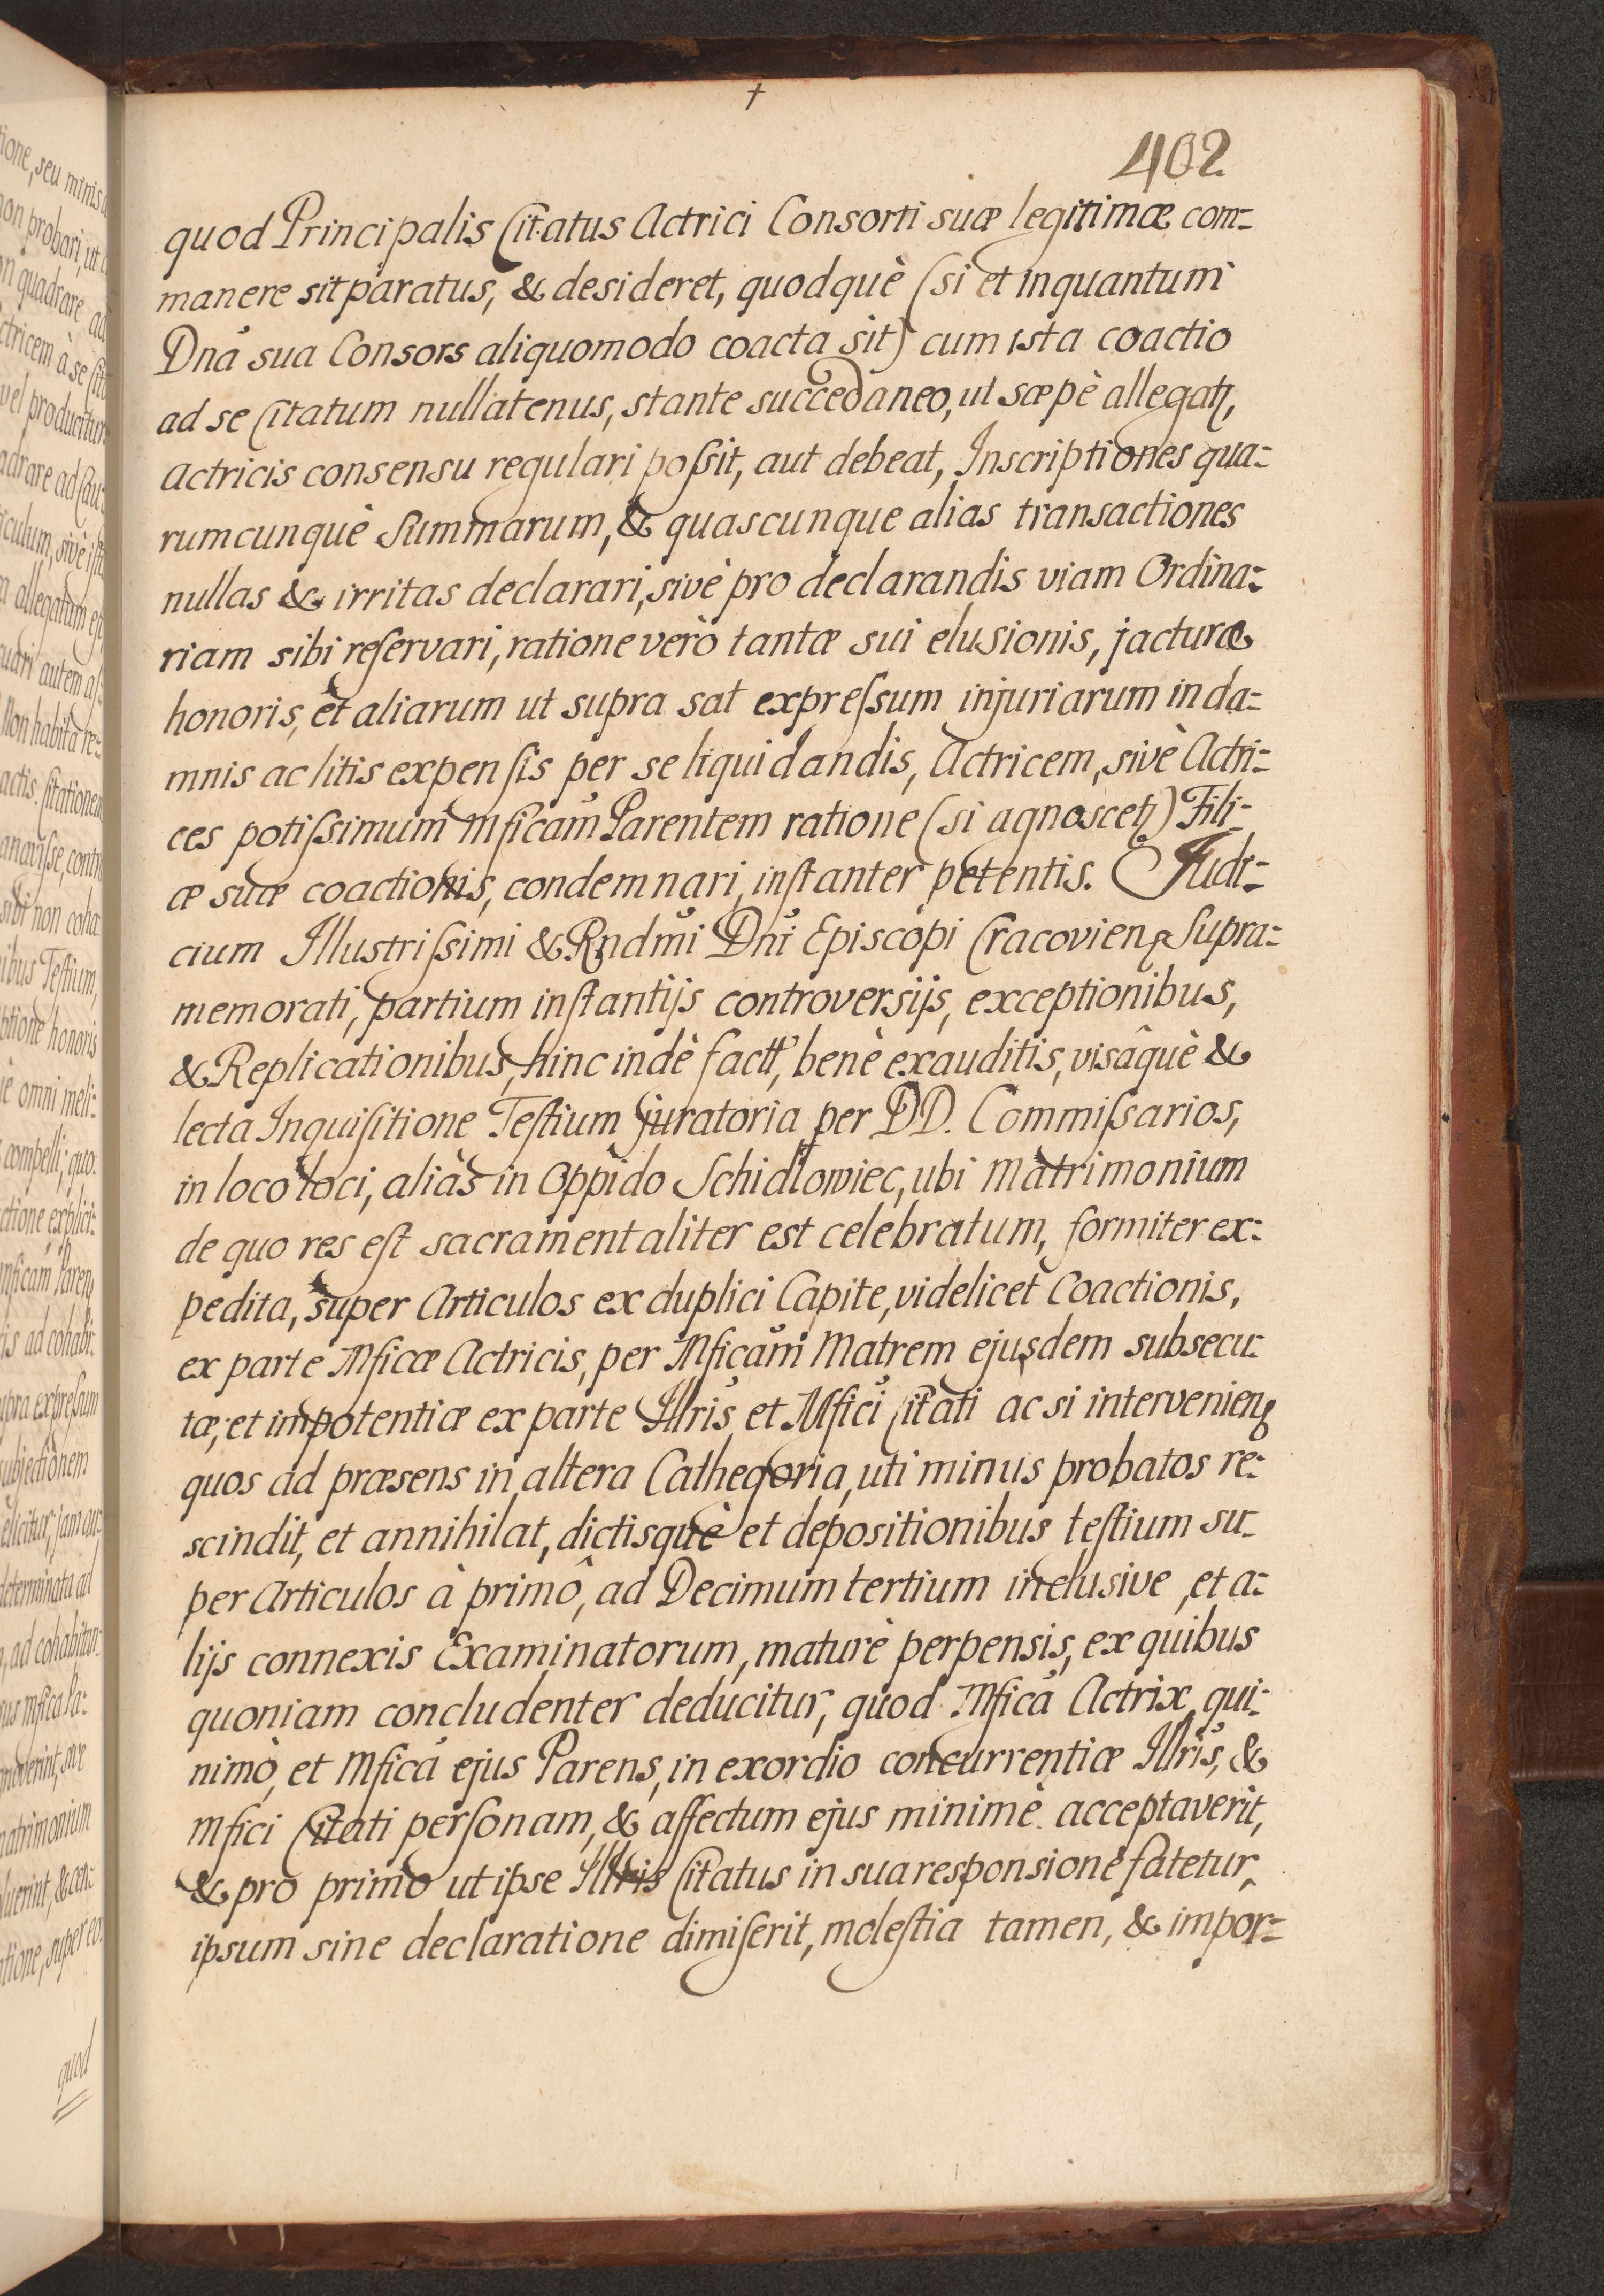 †
402
quod Principalis Citatus Actrici Consorti suæ legitimæ com-
manere sit paratus, & desideret, quodquè (si et inquantum
Dnā sua Consors aliquomodo coacta sit) cum ista coactio
ad se Citatum nullatenus, stante succedaneo, ut sæpè allegatꝭ,
Actricis consensu regulari poſsit, aut debeat, Inscriptiones qua-
rumcunquè Summarum, & quascunque alias transactiones
nullas & irritas declarari, sivè pro declarandis viam Ordina-
riam sibi reſervari, ratione verò tantæ sui elusionis, jacturæ
honoris, et aliarum ut supra sat expreſsum injuriarum in da-
mnis ac litis expenſis per se liquidandis, Actricem, sivè Actri-
ces potiſsimum Mficam̃ Parentem ratione (si agnoscetꝭ) Fili-
æ suæ coactionis, condemnari, inſtanter petentis. Judi-
cium Illustriſsimi & Rndm̃i Dnĩ Episcopi Cracovienꝭ Supra-
memorati, partium inſtantijs controversijs, exceptionibus,
& Replicationibus, hinc indè factt', benè exauditis, visâquè &
lecta Inquiſitione Teſtium juratoria per DD. Commiſsarios,
in loco loci, aliàs in Oppido Schidlowiec, ubi Matrimonium
de quo res eſt sacramentaliter est celebratum, formiter ex-
pedita, super Articulos ex duplici Capite, videlicet Coactionis,
ex parte Mficæ Actricis, per Mficam̃ Matrem ejusdem subsecu-
tæ; et impotentiæ ex parte Illris et Mfici Citati ac si intervenienꝭ
quos ad præsens in altera Cathegoria, uti minus probatos re-
scindit, et annihilat, dictisquè et depositionibus teſtium su-
per Articulos à primô, ad Decimum tertium inclusive, et a-
lijs connexis Examinatorum, maturè perpensis, ex quibus
quoniam concludenter deducitur, quod Mficā Actrix, qui-
nimò, et Mficā ejus Parens, in exordio concurrentiæ Illris, &
Mfici Citati perſonam, & affectum ejus minimè acceptaverit,
& pro primo ut ipse Illris Citatus in sua responsione fatetur,
ipsum sine declaratione dimiſerit, moleſtia tamen, & impor-
quod